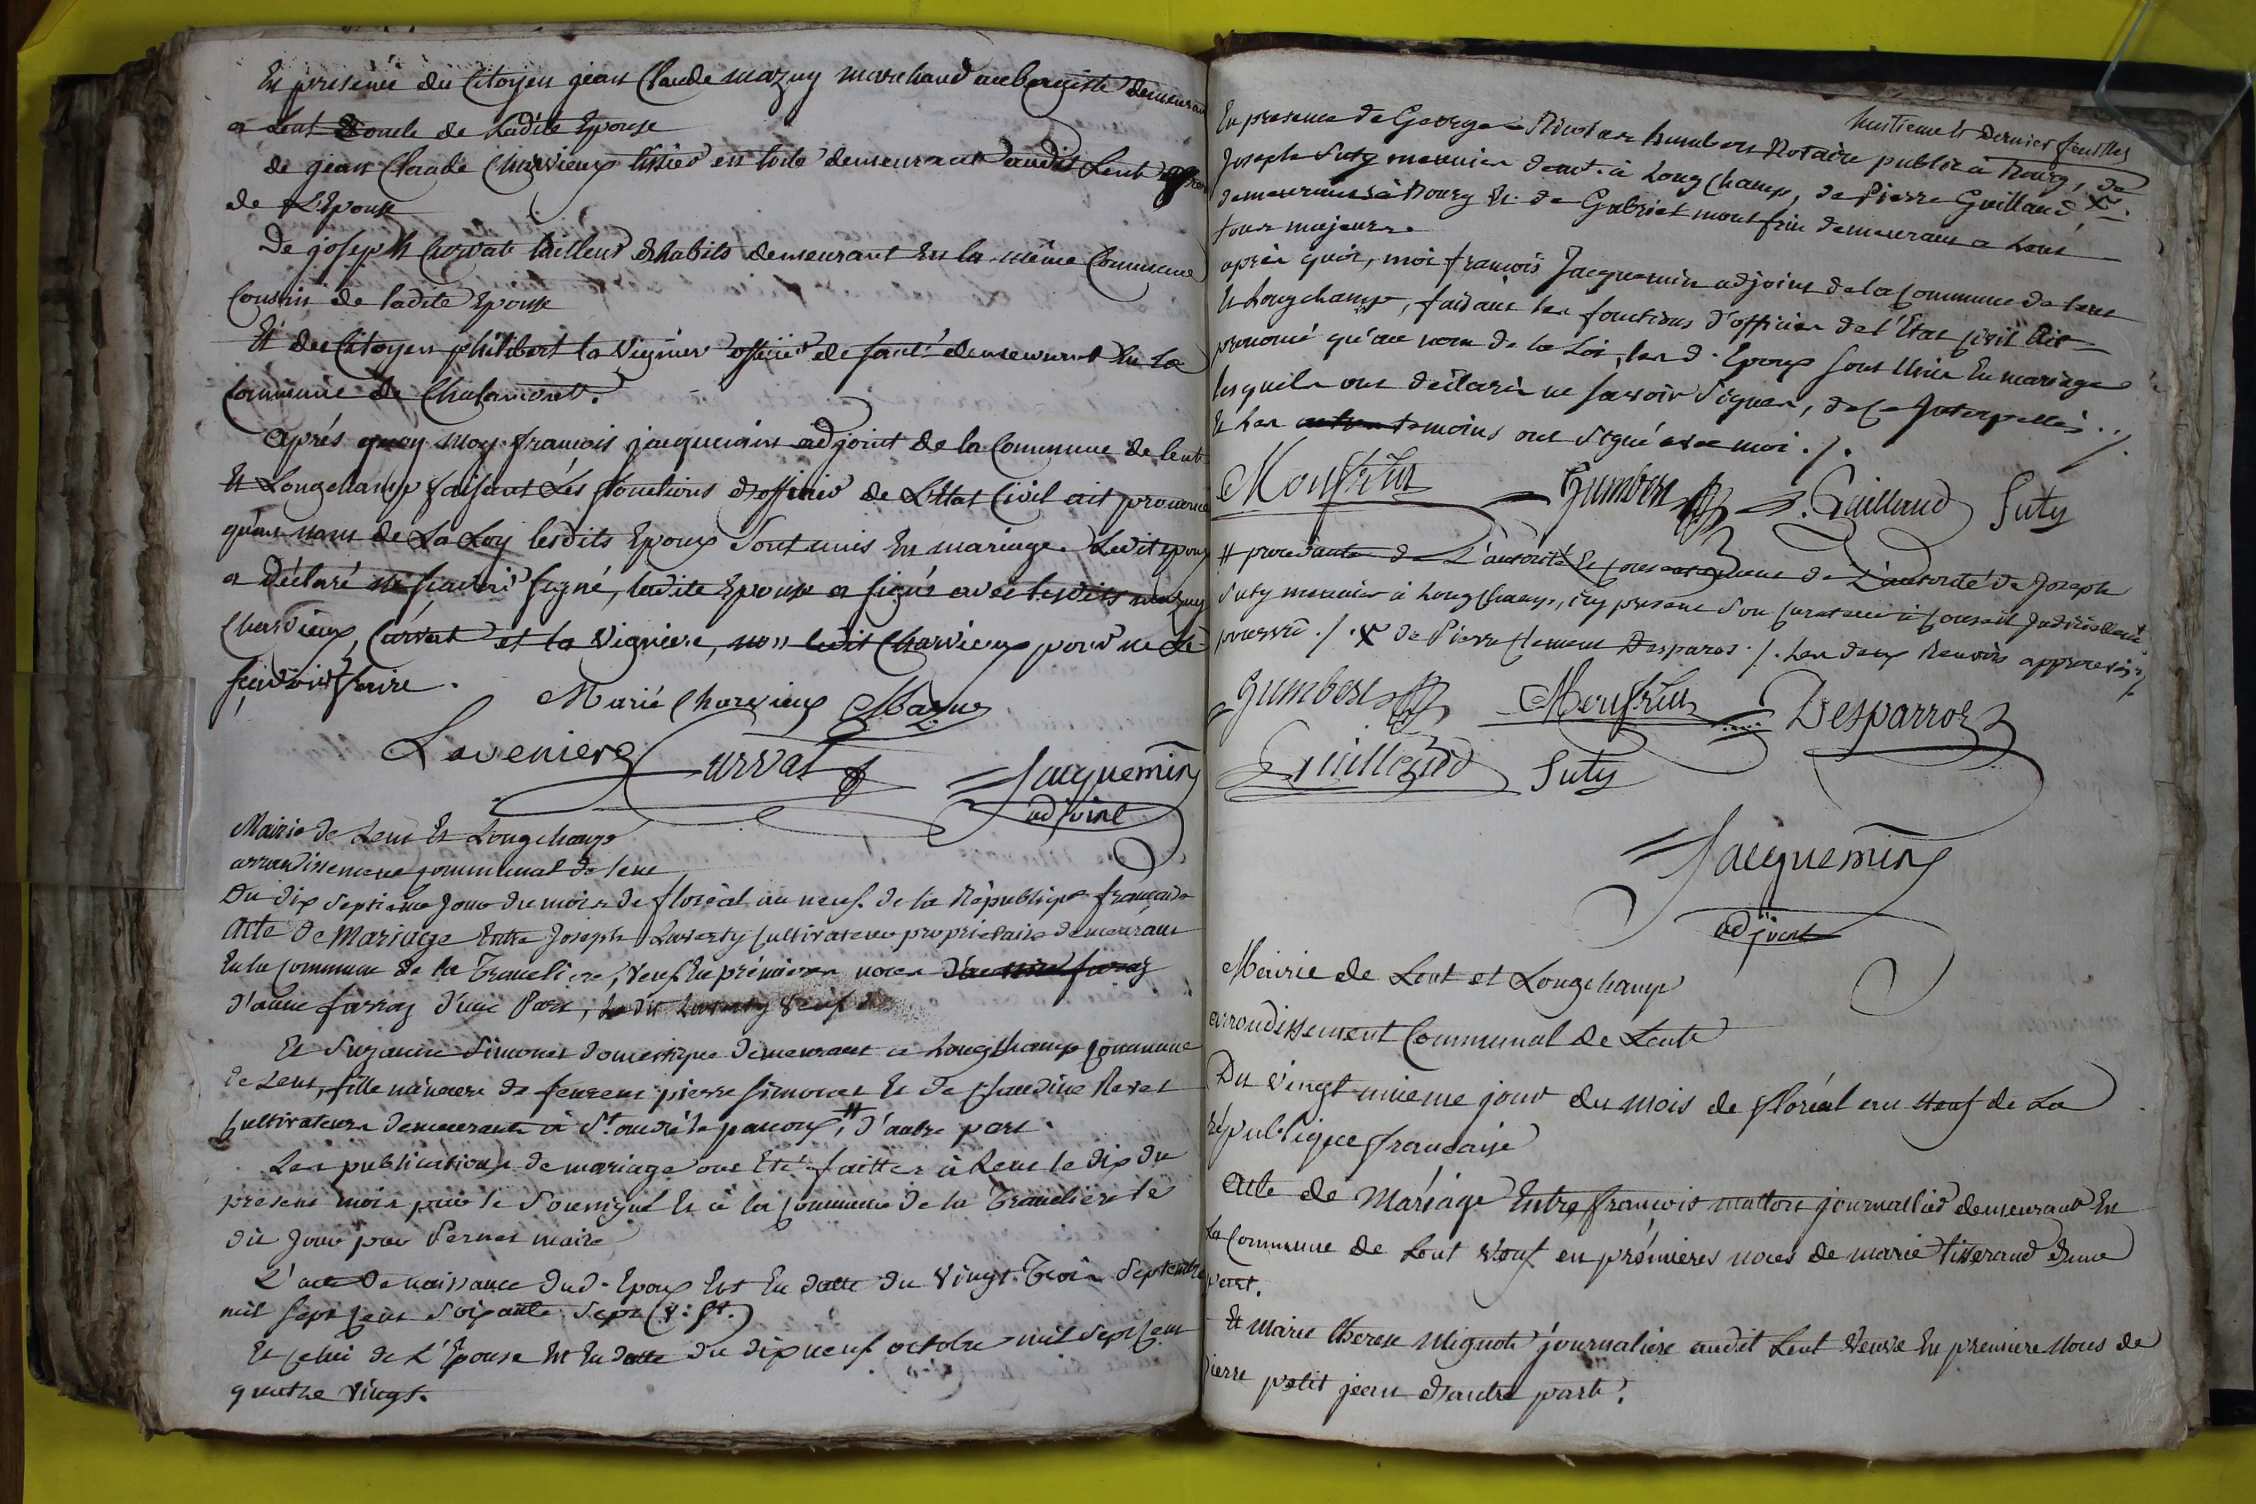 En presence du Citoyen jean Claude mazuy marchand aubergiste demeurant
a Lent oncle de Ladite Epouse
de jean Claude Charvieux tissier en toile demeurant audit Lent
de L'Epouse
De joseph Curvat tailleur d'habits demeurant En la même Commune
Cousin de ladite Epouse
Et du Citoyen philibert la Vigniere officier de santé demeurant En la
Commune de Chalamont.
Aprés quoy moy francois jacquemin adjoint de la Commune de lent
Et Longchamp faisant Les fonctions d'officier de L'Etat Civil ait prononcé
qu'au nom de La Loy lesdits Epoux sont unis En mariage. Ledit epoux
a déclaré ne scavoir signé, ladite Epouse a signé avec lesdits mazuy
Charvieux, Curvat et la Vigniere, non ledit Charvieux pour ne le
scavoir faire.
Marie Charvieux Mazuy
Laveniere Curvat Jacquemin
adjoint
Mairie de Lent Et Longchamp
arrondissement communal de lent
Du dix septieme jour du mois de floréal an neuf de la République française
Acte de Mariage Entre Joseph Laverty cultivateur propriétaire demeurant
En la commune de la Tranclière, veuf En prémieres noces
d'anne farraz d'une Part,
Et Suzanne Simonet domestique demeurant a Longchamp commune
de Lent, fille mineure de feu pierre Simonet Et de Claudine Revet
cultivateurs demeurants à St. andré le panoux, # d'autre part.
Les publications de mariage ont Eté faittes à Lent le dix du
présent mois par le soussigné Et à la commune de la Tranclière le
dit jour par Pernet maire
L'acte de naissance dud. Epoux Est En datte du vingt trois Septembre
mil sept cent soixante sept (v. st.)
Et celui de L'Epouse Est En datte du dix neuf octobre mil sept cent
quatre vingt.
huitieme et dernier feuillet
En presence de George Nicolas humbert Notaire public à Bourg, de
Joseph Suty meunier demt. à Long Champ, de Pierre Guillaud X.
demeurant à Bourg Et de Gabriel montfrin demeurant a Lent
tous majeurs
après quoi, moi francois Jacquemin adjoint de la commune de Lent
Et Longchamp, faisant les fonctions d'officier de l'Etat civil ait
prononcé qu'au nom de la Loi, les d. Epoux sont Unis En mariage
lesquels ont déclaré ne savoir signer, de ce Interpellés ./.
Et les temoins ont signé avec moi ./.
Monfrin Humbert P. Guillaud Suty
# procedante de L'autorité Et consentement de L'autorité de Joseph
Suty meunier à Longchamp, icy présent son curateur à conseil judiciellement
pourvu ./. X de Pierre Clement Desparros ./. Les deux Renvois approuvés ./.
Humbert Monfrin Desparros
Guillaud Suty
Jacquemin
adjoint
Mairie de Lent et Longchamp
arrondissement Communal de Lent
Du vingt unieme jour du mois de floréal an neuf de La
république francaise
Acte de Mariage Entre francois mattou journallier demeurant En
La Commune de Lent veuf en prémieres noces de marie tisserand d'une
part.
Et marie therese mignot journaliere audit Lent veuve En premiere noces de
pierre petit jean d'autre part.